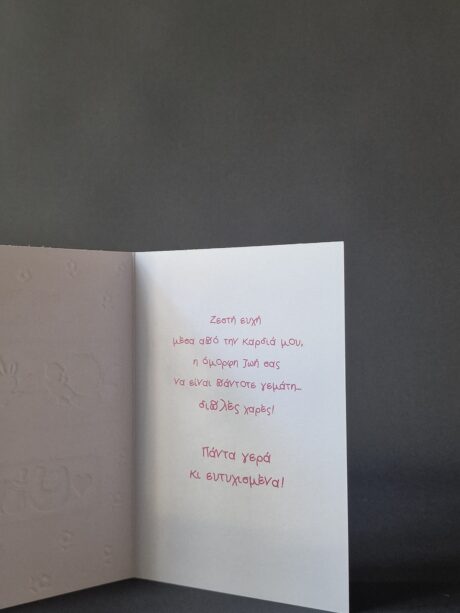 Ζεστή ευχή
μέσα από την καρδιά μου,
η όμορφη ζωή σας
να είναι πάντοτε γεμάτη...
διπλές χαρές!
Πάντα γερά
κι ευτυχισμένα!